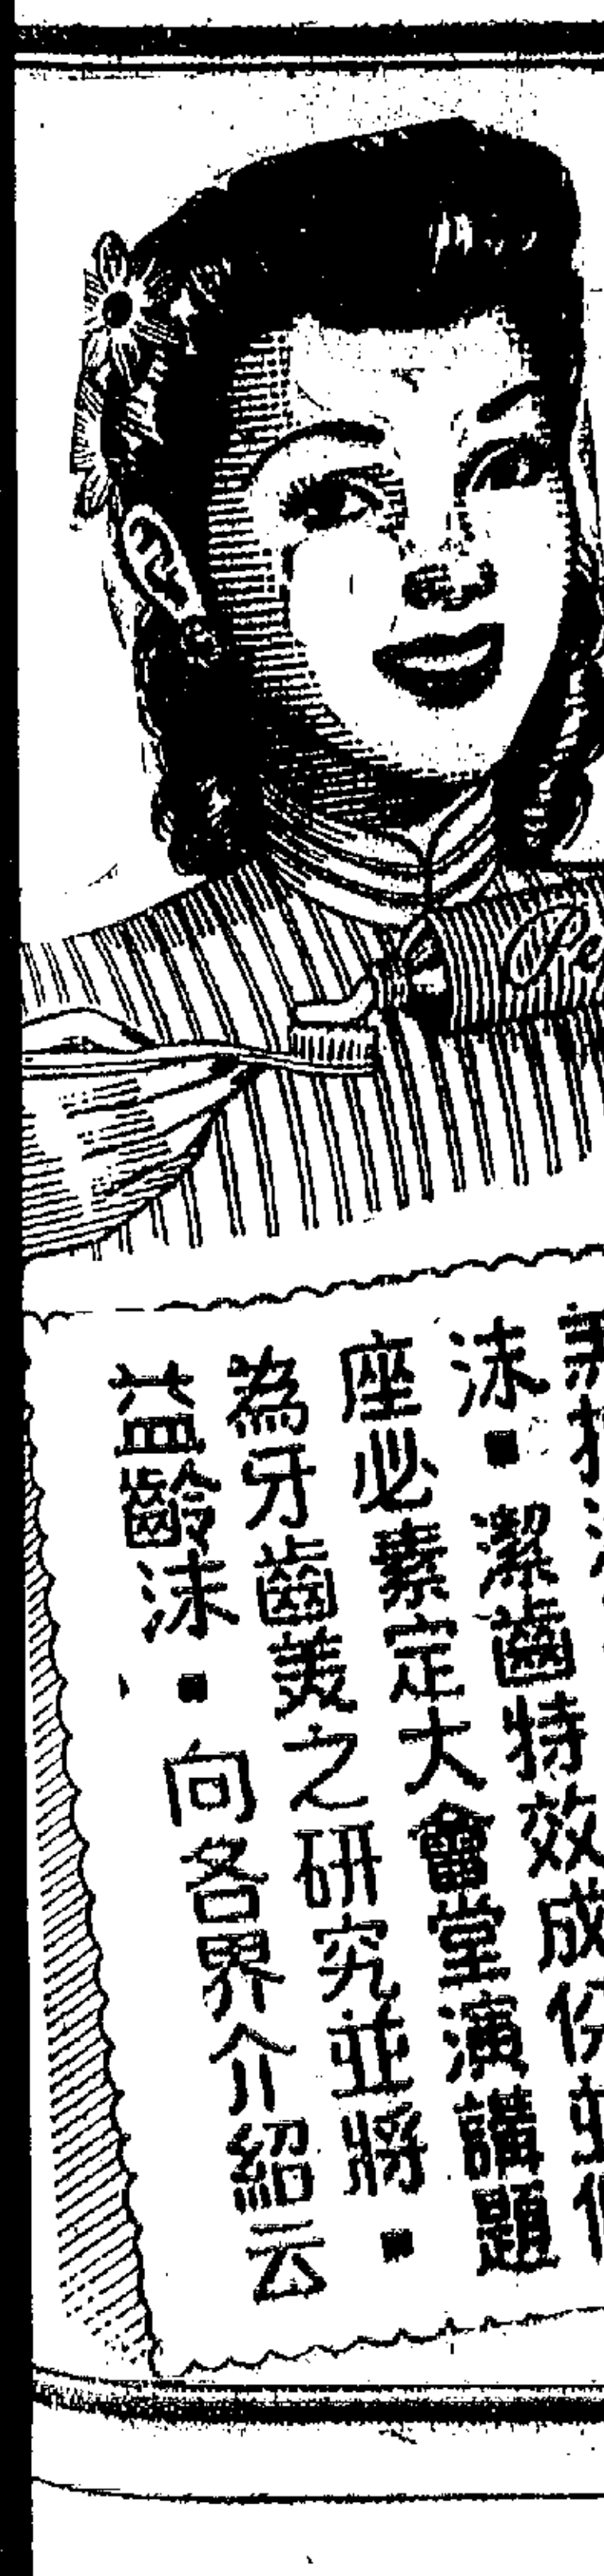 沫■潔齒特效成份
座必素定大會堂演講題
為牙齒美之研究並將■
益齡沫■向各界介紹云